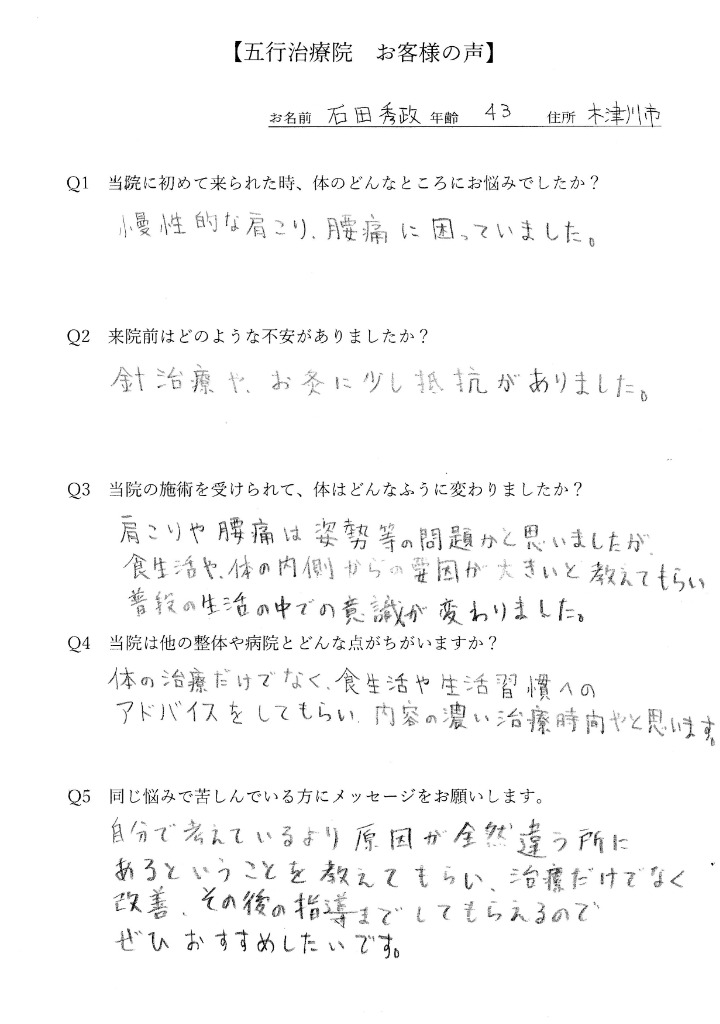 【五行治療院　お客様の声】
お名前 石田秀政 年齢 43 住所 木津川市
Q1　当院に初めて来られた時、体のどんなところにお悩みでしたか？
慢性的な肩こり、腰痛に困っていました。
Q2　来院前はどのような不安がありましたか？
針治療や、お灸に少し抵抗がありました。
Q3　当院の施術を受けられて、体はどんなふうに変わりましたか？
肩こりや腰痛は姿勢等の問題かと思いましたが、
食生活や、体の内側からの要因が大きいと教えてもらい
普段の生活の中での意識が変わりました。
Q4　当院は他の整体や病院とどんな点がちがいますか？
体の治療だけでなく、食生活や生活習慣への
アドバイスをしてもらい、内容の濃い治療時間やと思います。
Q5　同じ悩みで苦しんでいる方にメッセージをお願いします。
自分で考えているより原因が全然違う所に
あるということを教えてもらい、治療だけでなく
改善、その後の指導までしてもらえるので
ぜひおすすめしたいです。